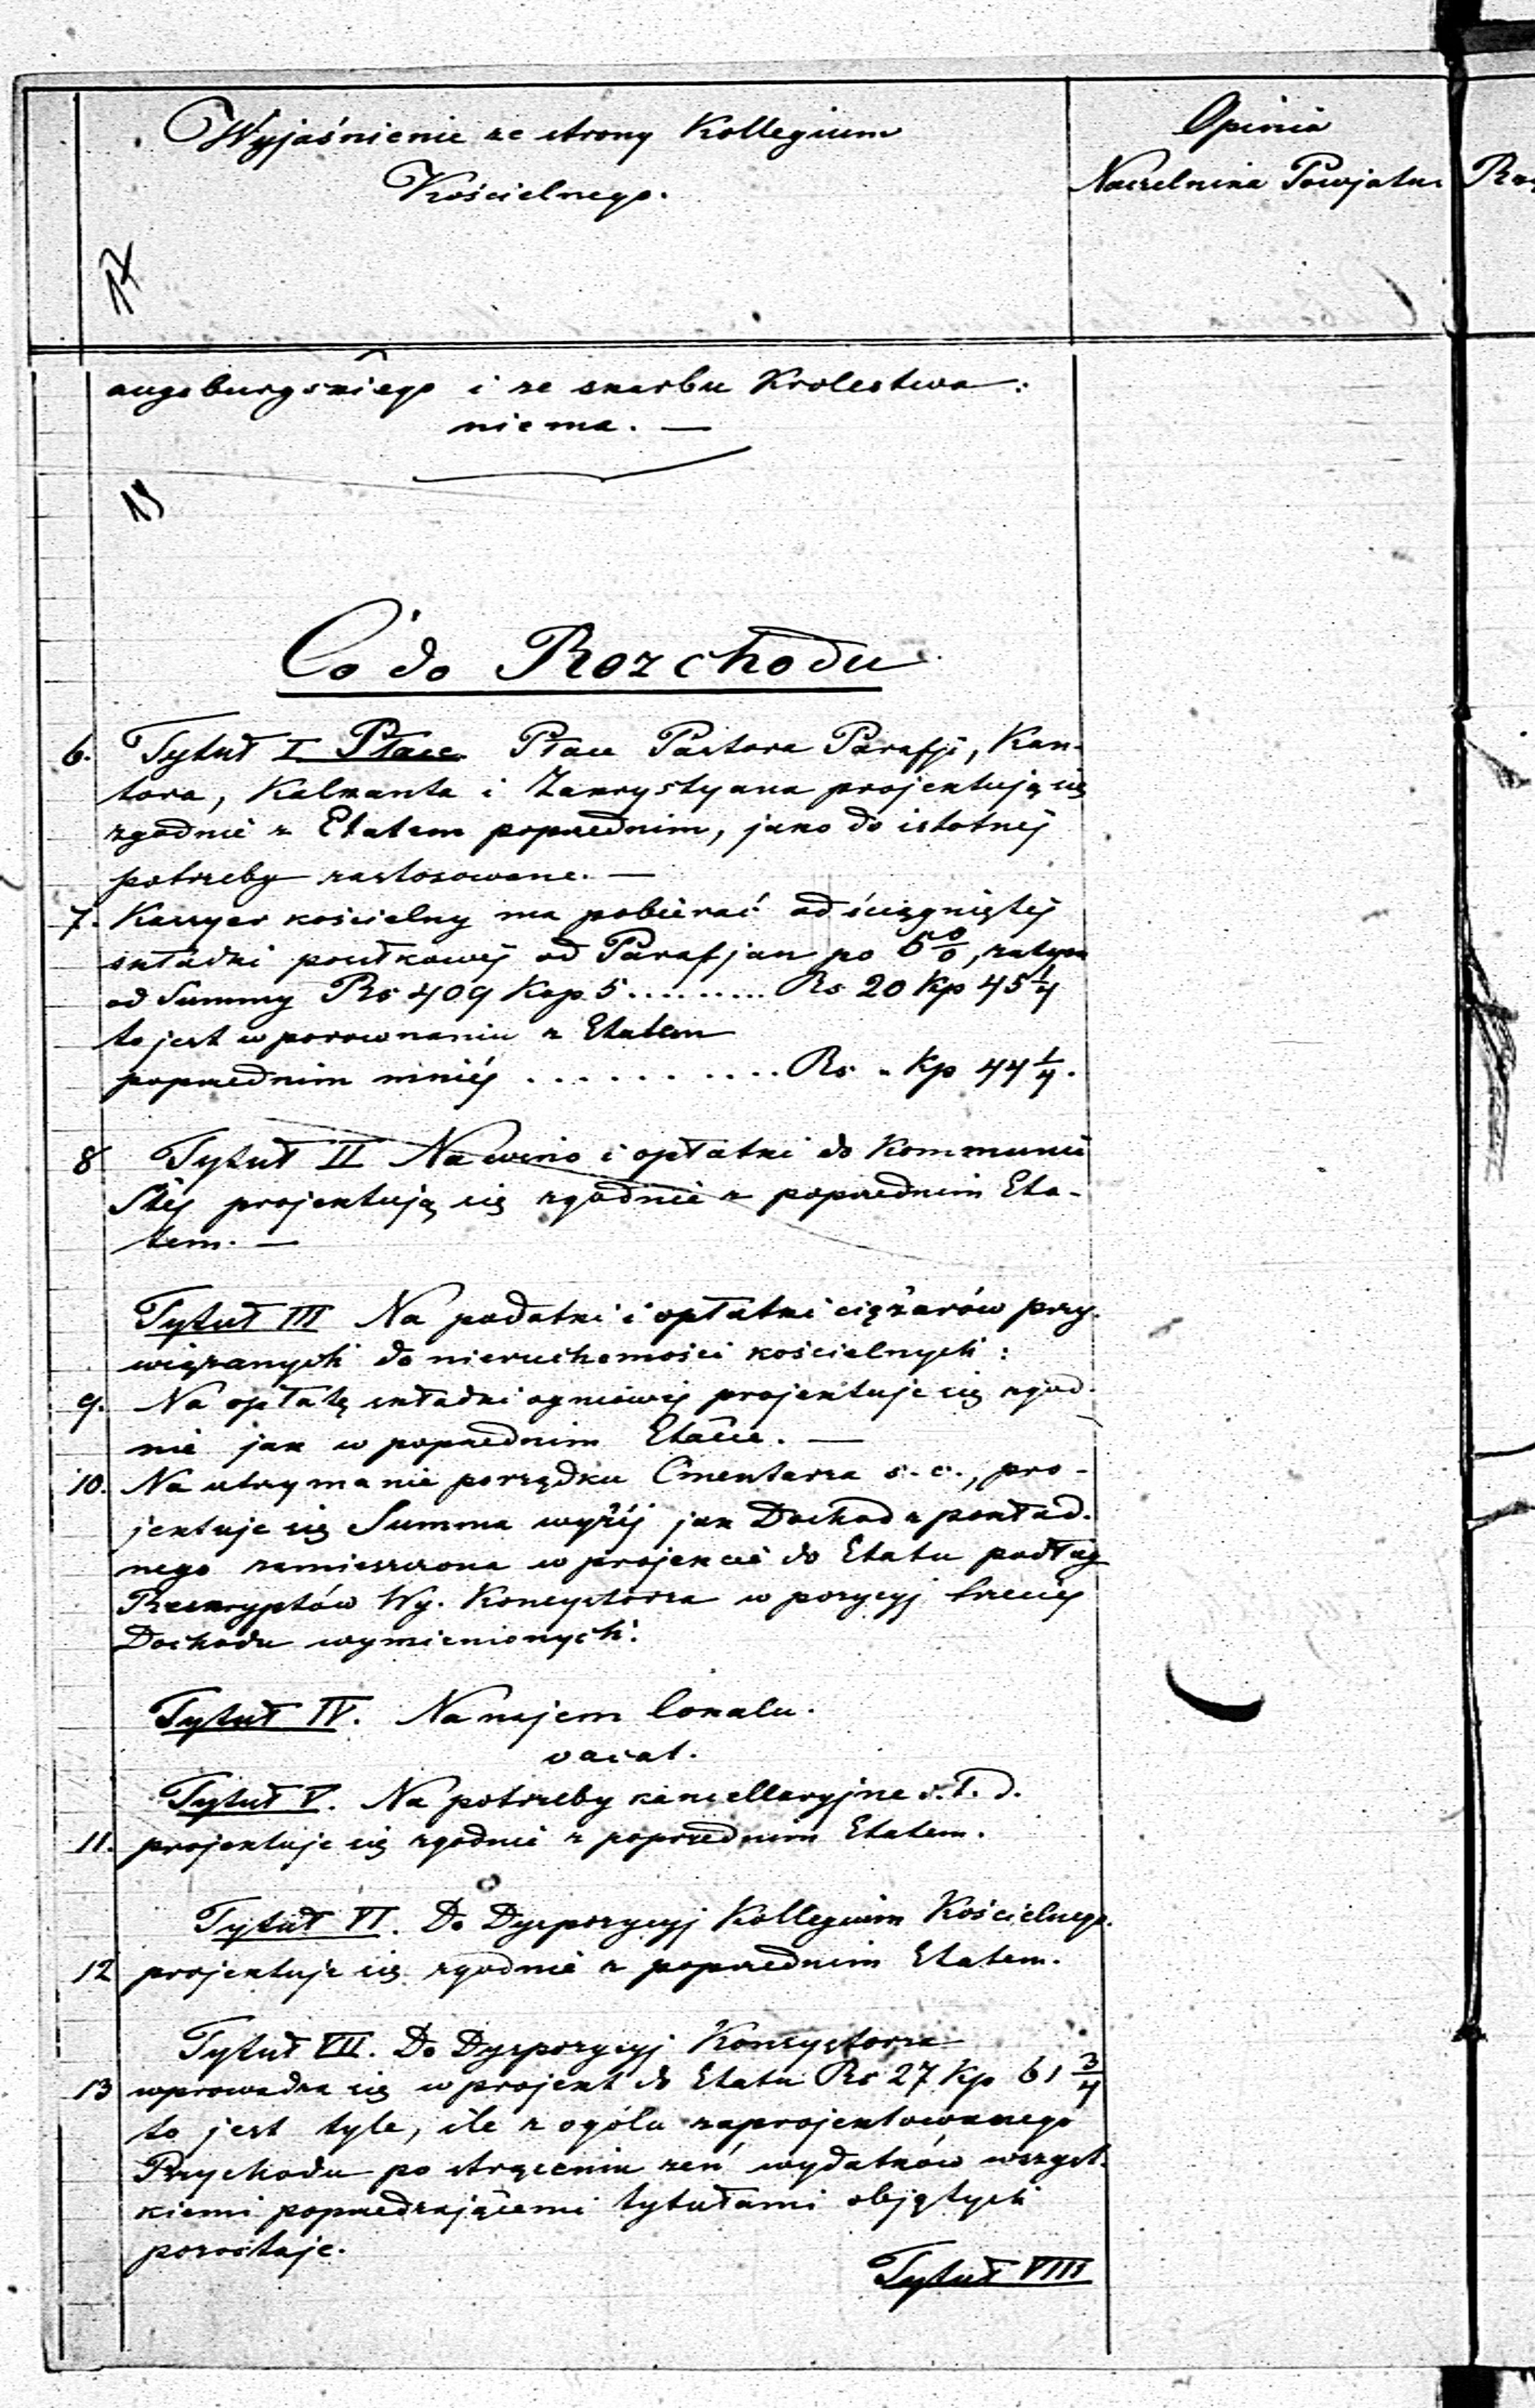 Wyjaśnienie ze strony Kollegium
Kościelnego.
Opinia
Naczelnika Powjatu
augsburgskiego i ze skarbu Krolestwa:
niema. —
Co do Rozchodu
6. Tytuł I. Płace. Płace Pastora Parafji, Kan-
tora, Kalkanta i Zakrystyana projektują się
zgodnie z Etatem poprzednim, jako do istotnéj
potrzeby zastosowane. —
7. Kassyer kościelny ma pobierać od ściągniętéj
składki posiłkowéj od Parafjan po 5%, zatym
od Summy Rs 409 Kop. 5 ......... Rs 20 Kp 45 1/4
to jest w porownaniu z Etatem
poprzednim mniéj ........... Rs „ Kp 44 1/4.
8 Tytuł II Na wino i opłatki do Kommunii
Stéj projektują się zgodnie z poprzednim Eta-
tem. —
Tytuł III Na podatki i opłatki ciężarów przy-
wiązanych do nieruchomości kościelnych:
9. Na opłatę składki ogniowéj projektuje się zgod-
nie jak w poprzednim Etacie. —
10. Na utrzymanie porządku Cmentarza s. c., pro-
jektuje się Summa wyżéj jak Dochod z pokład-
nego zamieszczona w projekcie do Etatu podług
Reskryptów Wy. Konsystorza w pozycyj trzeciéj
Dochodu wymienionych.
Tytuł IV. Na najem lokalu.
vacat.
Tytuł V. Na potrzeby kancellaryjne i. t. d.
11. projektuje się zgodnie z poprzednim Etatem.
Tytuł VI. Do Dyspozycyj Kollegium Kościelnego.
12 projektuje się zgodnie z poprzednim Etatem.
Tytuł VII. Do Dyspozycyj Konsystorza
13 wprowadza się w projekt do Etatu Rs 27 Kp 61 3/4
to jest tyle, ile z ogólu zaprojektowanego
Przychodu po strąceniu zeń wydatków wszyst-
kiemi poprzedzającemi tytułami objętych
pozostaje.
Tytuł VIII